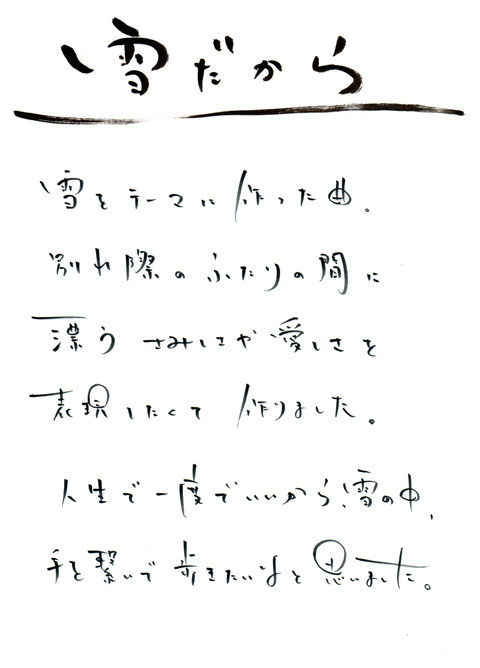 雪だから
雪をテーマに作った曲。
別れ際のふたりの間に
漂うさみしさや愛しさを
表現したくて作りました。
人生で一度でいいから雪の中、
手を繋いで歩きたいなと思いました。